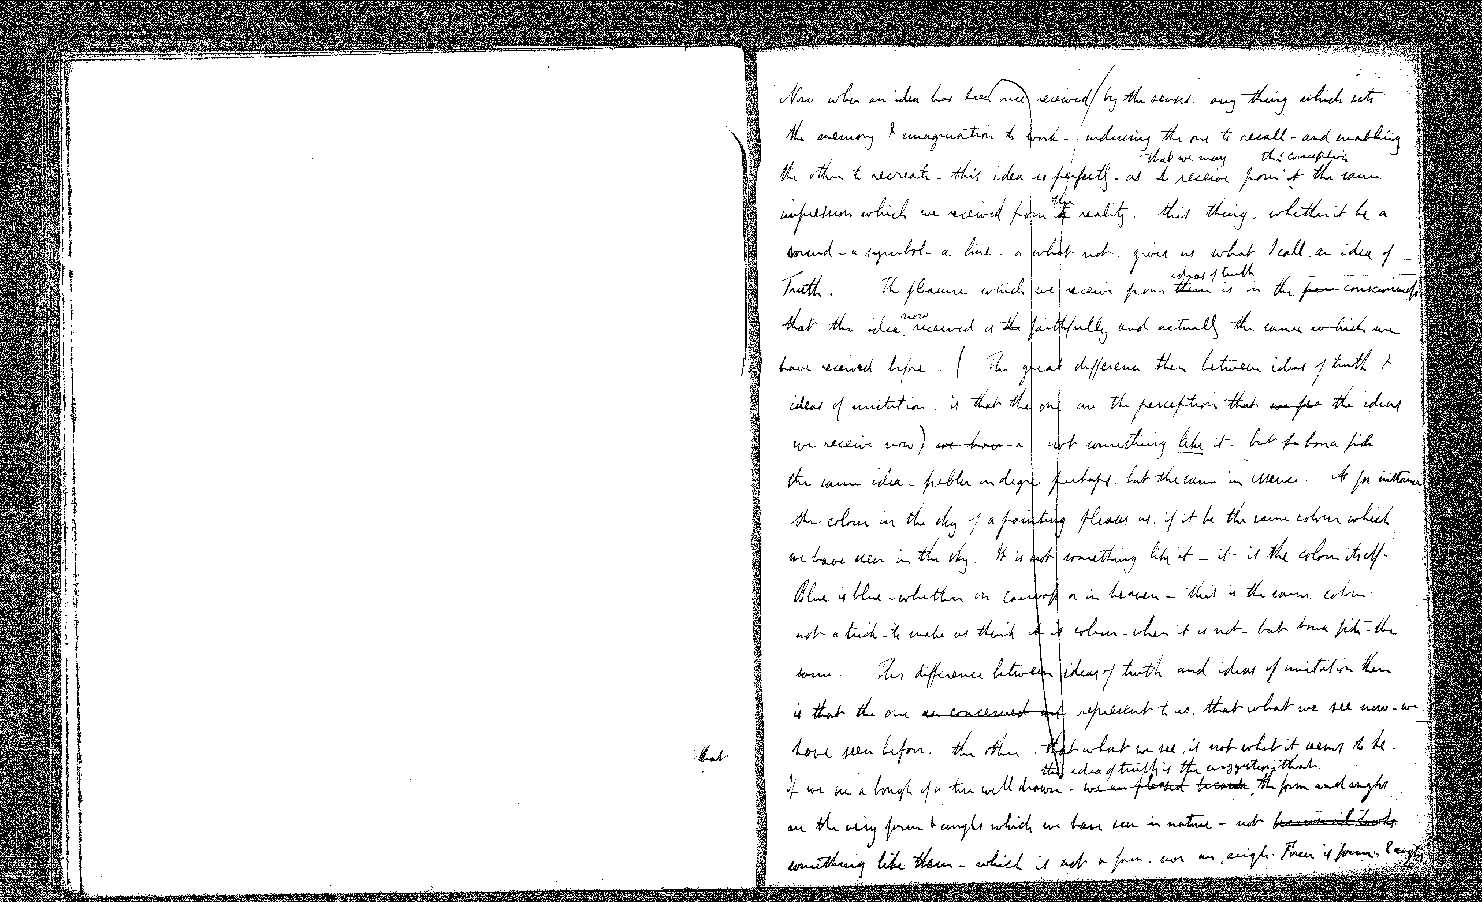 that
Now when an idea has been once received by the senses. any thing which sets
the memory & imagination to work - inducing the one to recall - and enabling
that we may this conception
the other to recreate - this idea so perfectly - as to receive from it the same
the
impression which we received from the reality. this thing. whether it be a
sound - a symbol - a line - or what not. gives us what I call an idea of
ideas of truth
Truth. The pleasure which we receive from them is in the consciousness
now
that the idea received is the faithfully and actually the same which we
have received before. ( The great difference then between ideas of truth &
ideas of imitation. is that the one are the perception that the ideas
we receive now) we have - a not something like it - but bona fide
the same idea - feebler in degree perhaps. but the same in essence. As for instance
the colour in the sky of a painting pleases us. if it be the same colour which
we have seen in the sky. It is not something like it - it is the colour itself -
Blue is blue - whether on canvass or in heaven - this is the same colour
not a trick - to make us think it is colour - when it is not - but bona fide - the
same. This difference between ideas of truth and ideas of imitation then
is that the one are concerned represent to us. that what we see now - we
have seen before. the other. that what we see, is not what it seems to be.
the idea of truth is the that
If we see a bough of a tree well drawn - we are pleased because the form and angles
are the very form & angles which we have seen in nature - not
something like them - which is not a form. nor an angle. Form is form. & angle